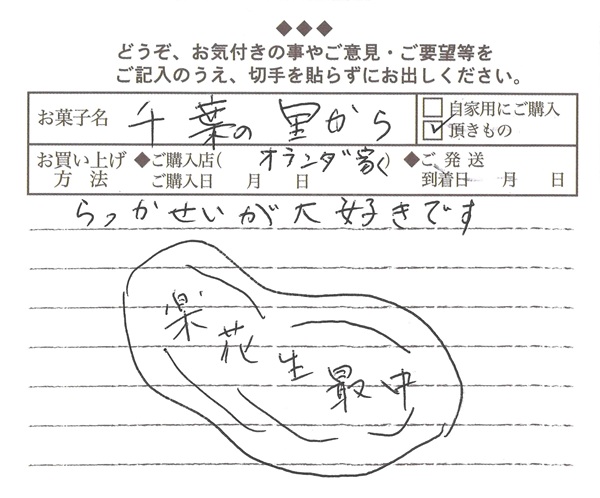 ◆◆◆
どうぞ、お気付きの事やご意見・ご要望等を
ご記入のうえ、切手を貼らずにお出しください。
お菓子名 千葉の里から □ 自家用にご購入
☑ 頂きもの
お買い上げ ◆ご購入店(オランダ家) ◆ご発送
方法 ご購入日 月 日 到着日 月 日
らっかせいが大好きです
楽花生最中